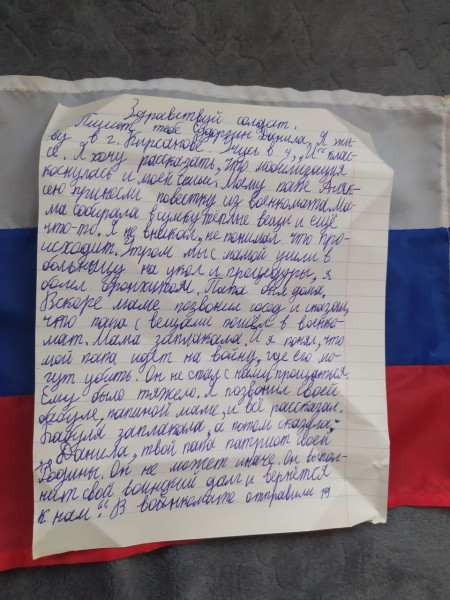 Здравствуй солдат.
Пишет тебе Сдоргин Данила. Я жи-
ву в г. Кирсанове. Учусь в 4 „И" клас-
се. Я хочу рассказать, что мобилизация
коснулась и моей семьи. Моему папе Алек-
сею принесли повестку из военкомата. Ма-
ма собирала в сумку тёплые вещи и ещё
что-то. Я не вникал, не понимал что про-
исходит. Утром мы с мамой ушли в
больницу на укол и процедуры, я
болел бронхитом. Папа был дома.
Вскоре маме позвонил сосед и сказал,
что папа с вещами пошёл в военко-
мат. Мама заплакала. И я понял, что
мой папа идёт на войну, где его мо-
гут убить. Он не стал с нами прощаться.
Ему было тяжело. Я позвонил своей
бабуле, папиной маме, и всё рассказал.
Бабуля заплакала, а потом сказала,
„Данила, твой папа патриот своей
Родины. Он не может иначе. Он выпол-
нит свой воинский долг и вернётся
к нам". В военкомате отправили